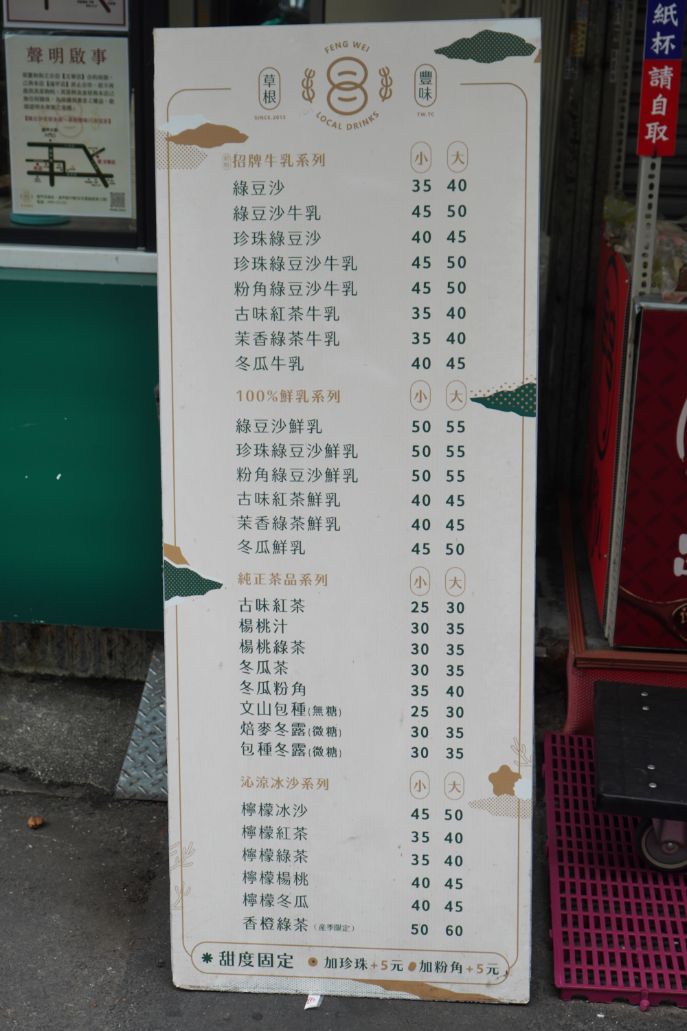 紙杯
請自取
聲明啟事
FENG WEI
草根
豐味
SINCE.2013
TW.TC
LOCAL DRINKS
招牌牛乳系列 小 大
綠豆沙 35 40
綠豆沙牛乳 45 50
珍珠綠豆沙 40 45
珍珠綠豆沙牛乳 45 50
粉角綠豆沙牛乳 45 50
古味紅茶牛乳 35 40
茉香綠茶牛乳 35 40
冬瓜牛乳 40 45
100%鮮乳系列 小 大
綠豆沙鮮乳 50 55
珍珠綠豆沙鮮乳 50 55
粉角綠豆沙鮮乳 50 55
古味紅茶鮮乳 40 45
茉香綠茶鮮乳 40 45
冬瓜鮮乳 45 50
純正茶品系列 小 大
古味紅茶 25 30
楊桃汁 30 35
楊桃綠茶 30 35
冬瓜茶 30 35
冬瓜粉角 35 40
文山包種(無糖) 25 30
焙麥冬露(微糖) 30 35
包種冬露(微糖) 30 35
沁涼冰沙系列 小 大
檸檬冰沙 45 50
檸檬紅茶 35 40
檸檬綠茶 35 40
檸檬楊桃 40 45
檸檬冬瓜 40 45
香橙綠茶(產季限定) 50 60
*甜度固定 加珍珠+5元 加粉角+5元